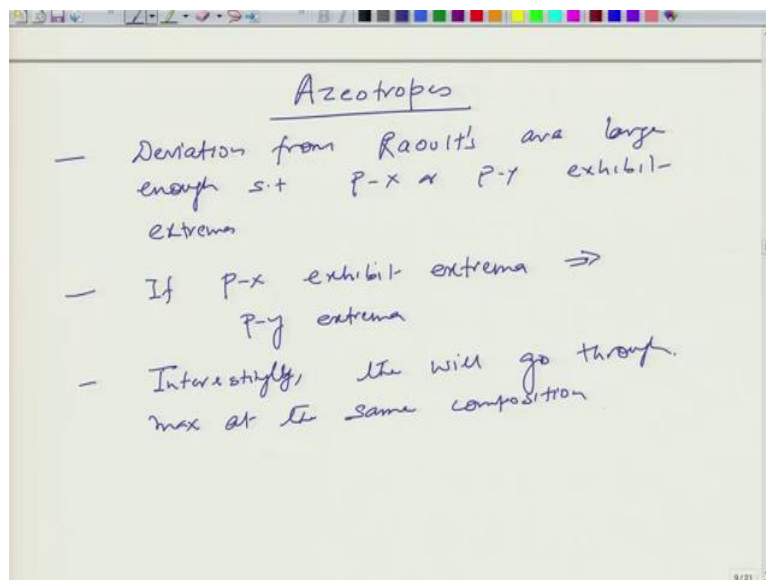 Azeotropes
— Deviation from Raoult's are large
enough s.t P-x or P-y exhibit
extrema
— If P-x exhibit extrema ⇒
P-y extrema
- Interestingly, the will go through
max at the same composition
9/21